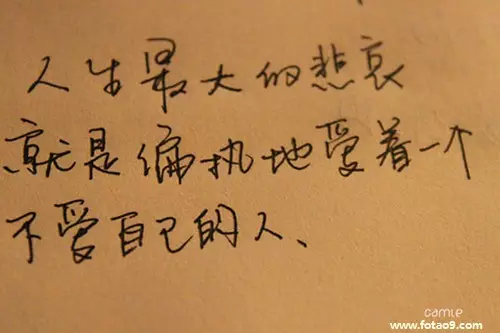 人生最大的悲哀
就是偏执地爱着一个
不爱自己的人、
camie
www.fotao9.com